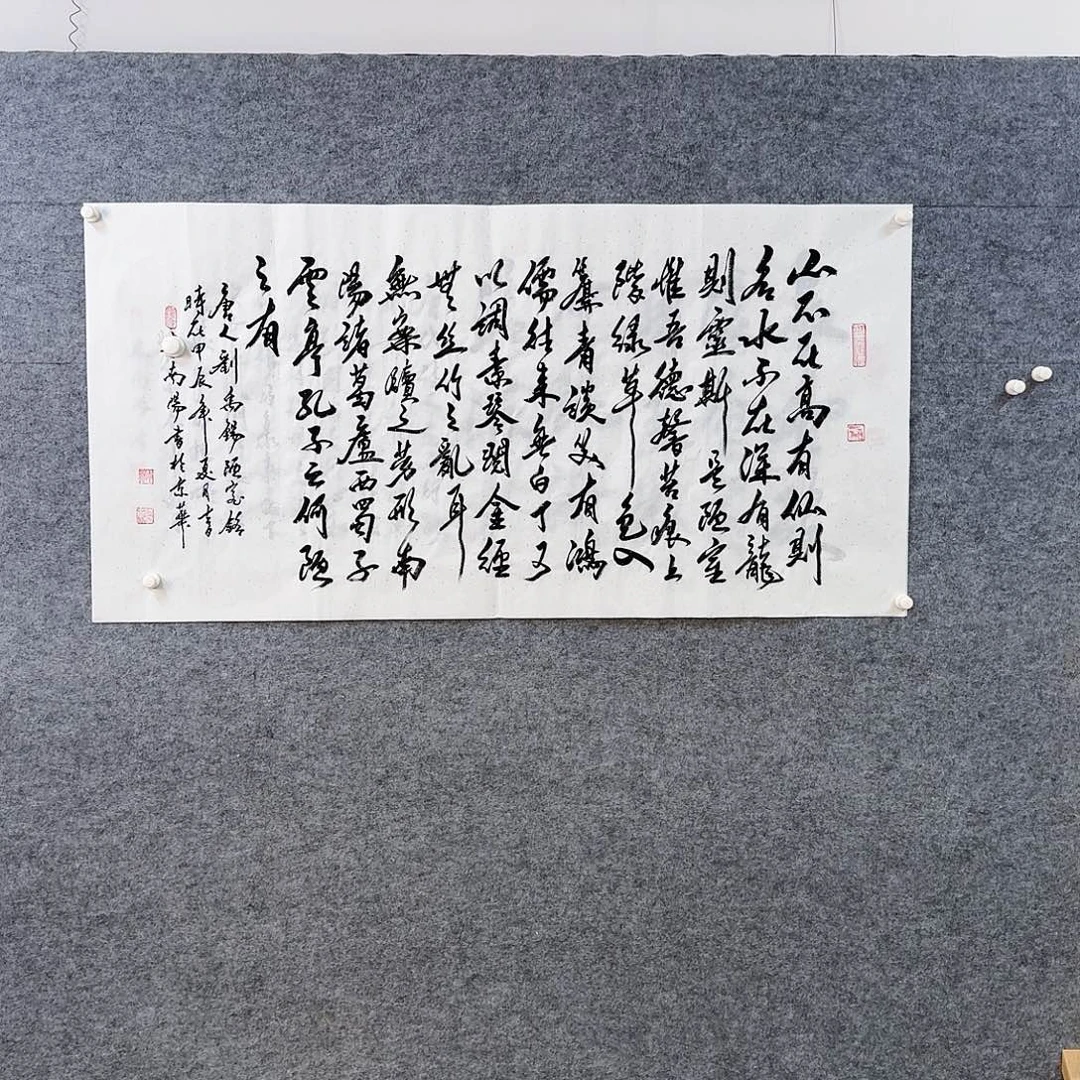 山不在高有仙則
名水不在深有龍
則靈斯是陋室
惟吾德馨苔痕上
階綠草色入
簾青談笑有鴻
儒往來無白丁可
以調素琴閱金經
無丝竹之亂耳
無案牘之勞形南
陽諸葛廬西蜀子
雲亭孔子云何陋
之有
唐人劉禹錫陋室銘
時在甲辰年夏月書
南陽書於京華